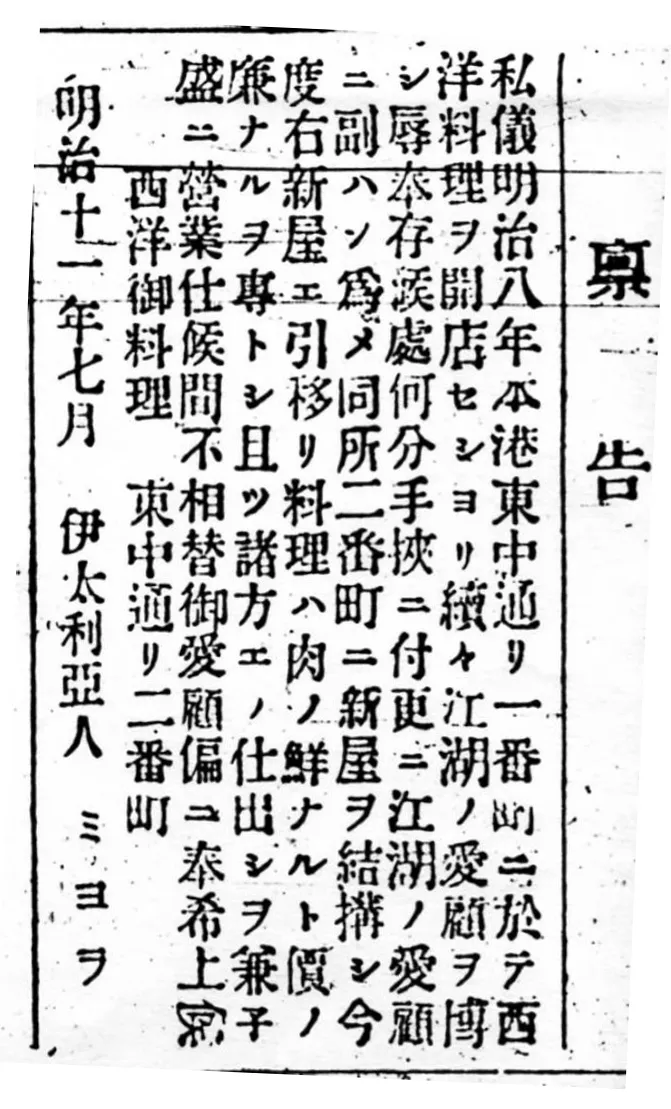 稟告
私儀明治八年本港東中通リ一番町ニ於テ西
洋料理ヲ開店セシヨリ續々江湖ノ愛顧ヲ博
シ辱奉存候處何分手挾ニ付更ニ江湖ノ愛顧
ニ副ハン爲メ同所二番町ニ新屋ヲ結搆シ今
度右新屋エ引移リ料理ハ肉ノ鮮ナルト價ノ
廉ナルヲ專トシ且ツ諸方エノ仕出シヲ兼子
盛ニ營業仕候間不相替御愛顧偏ニ奉希上候
西洋御料理 東中通リ二番町
明治十一年七月 伊太利亞人 ミヨヲ